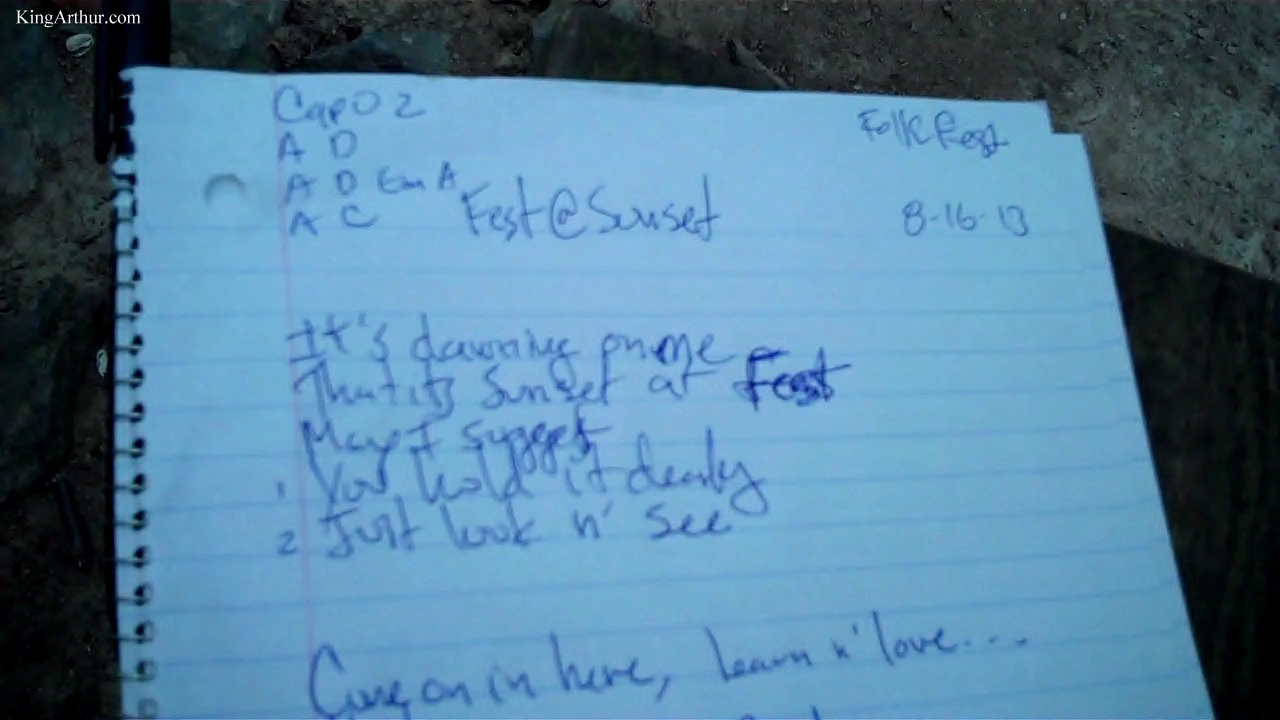 KingArthur.com
Capo 2
A D
A D Em A
A C
Fest@Sunset
Folk Fest
8-16-13
It's dawning on me
That it's Sunset at Fest
May I suggest
1. You hold it dearly
2 Just look n' see
Come on in here, learn n' love....